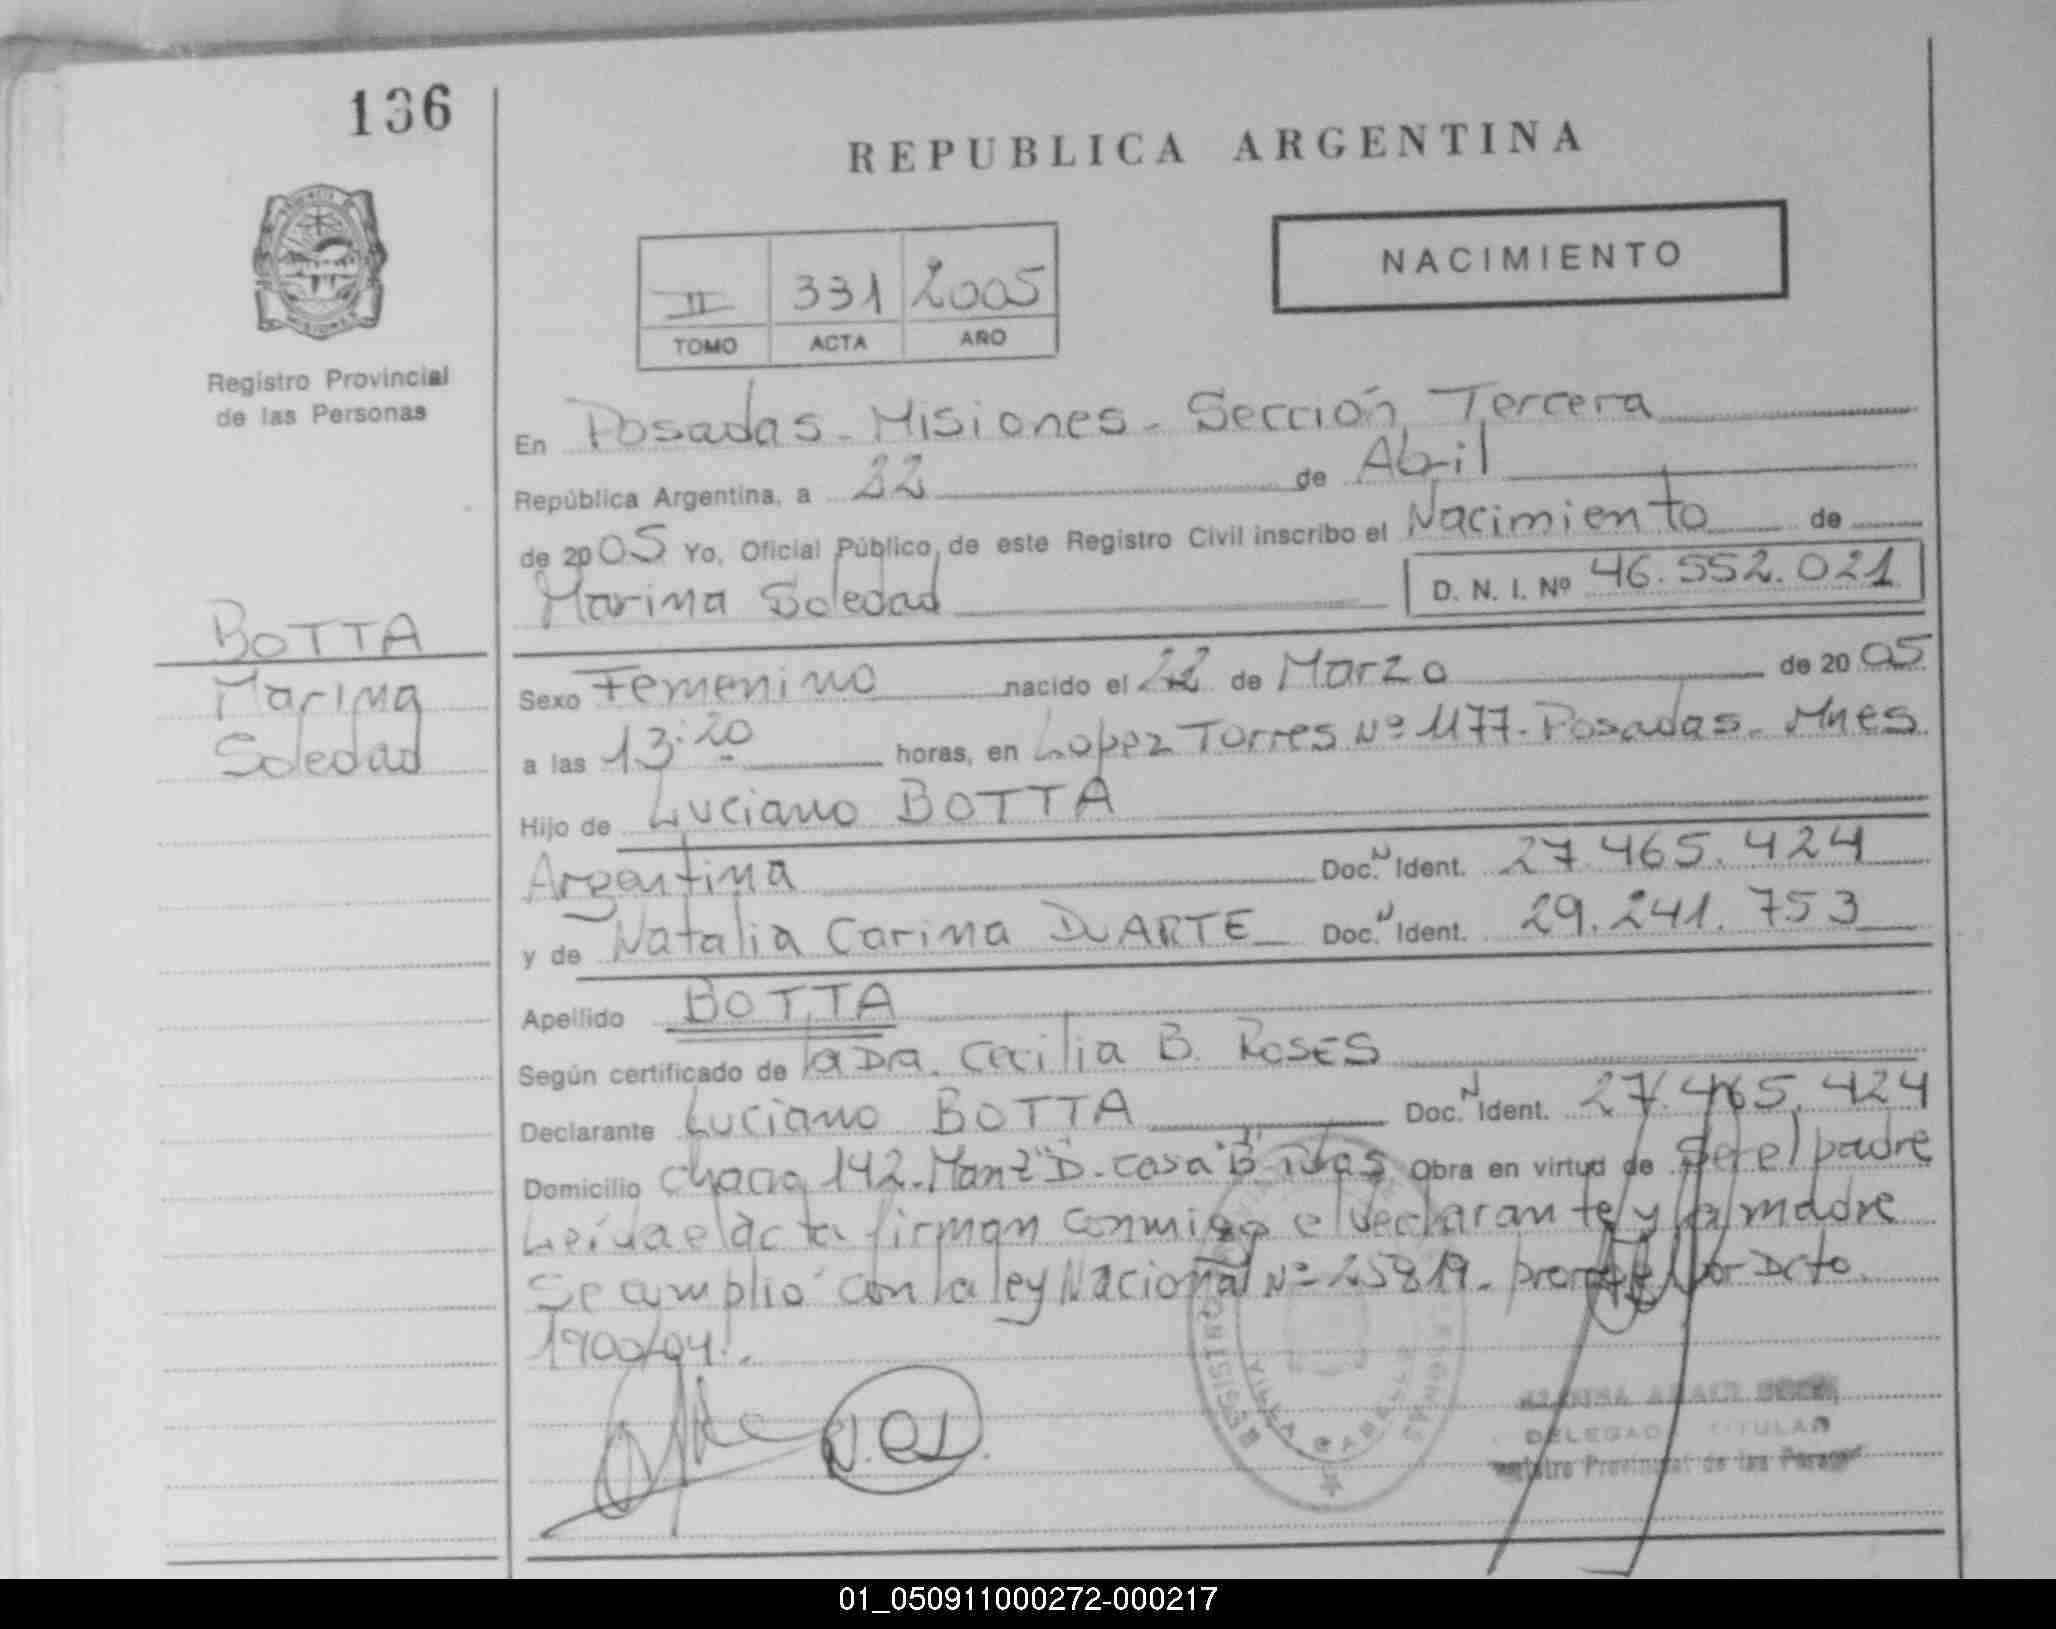 136
REPUBLICA ARGENTINA
NACIMIENTO
II 331 2005
TOMO ACTA AÑO
Registro Provincial
de las Personas
En Posadas - Misiones - Sección Tercera
República Argentina, a 22 de Abril
de 2005 Yo, Oficial Público, de este Registro Civil inscribo el Nacimiento de
Marina Soledad D. N. I. Nº 46.552.021
BOTTA
Marina
Soledad
Sexo Femenino nacido el 22 de Marzo de 2005
a las 13:20 horas, en Lopez Torres Nº 1177 - Posadas - Mnes
Hijo de Luciano BOTTA
Argentina Doc. N Ident. 27.465.424
y de Natalia Carina DUARTE Doc. N Ident. 29.241.753
Apellido BOTTA
Según certificado de la Dra. Cecilia B. Roses
Declarante Luciano BOTTA Doc. N Ident. 27.465.424
Domicilio chacra 142 - Manz "D" - casa "B" Obra en virtud de ser el padre
Leída el acta firman conmigo el declarante y la madre
Se cumplió con la ley Nacional Nº 25819 - por Dcto.
1900/04.
REGISTRO
VILLA CABELLO
DELEGADA TITULAR
Registro Provincial de las Personas
01_050911000272-000217